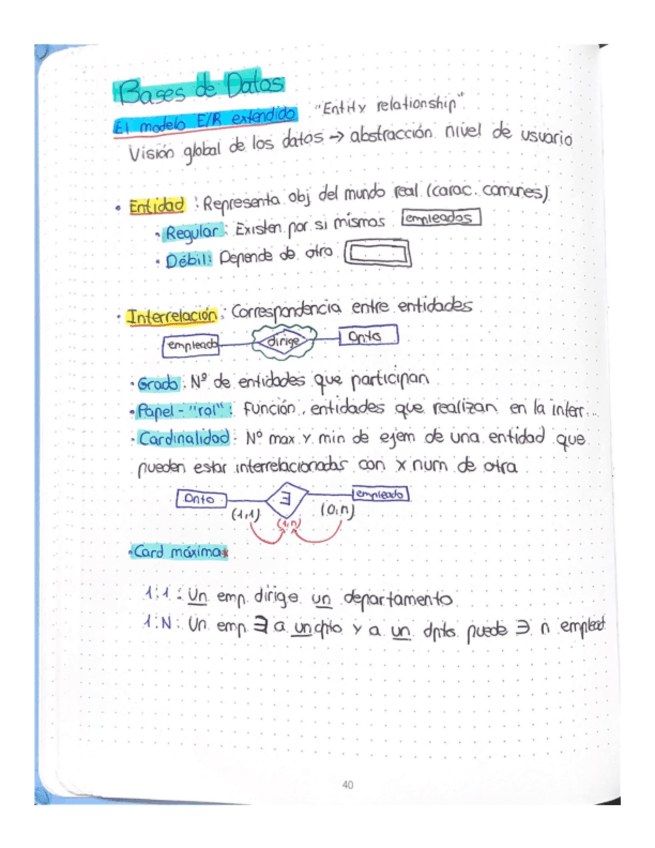 Bases de Datos
El modelo E/R extendido "Entity relationship"
Visión global de los datos → abstracción nivel de usuario
• Entidad : Representa obj del mundo real (carac. comunes)
• Regular : Existen por si mismos empleados
• Débil : Depende de otro
• Interrelación : Correspondencia entre entidades
empleado dirige Dnto
• Grado : Nº de entidades que participan
• Papel - "rol" : función, entidades que realizan en la interr...
• Cardinalidad : Nº max y min de ejem de una entidad que
pueden estar interrelacionadas con x num de otra
Dnto ∃ empleado
(1,1) (1,n) (0,n)
• Card máxima
1:1 : Un emp. dirige un departamento
1:N : Un emp ∃ a un dpto y a un dpto puede ∃ n emplead
40